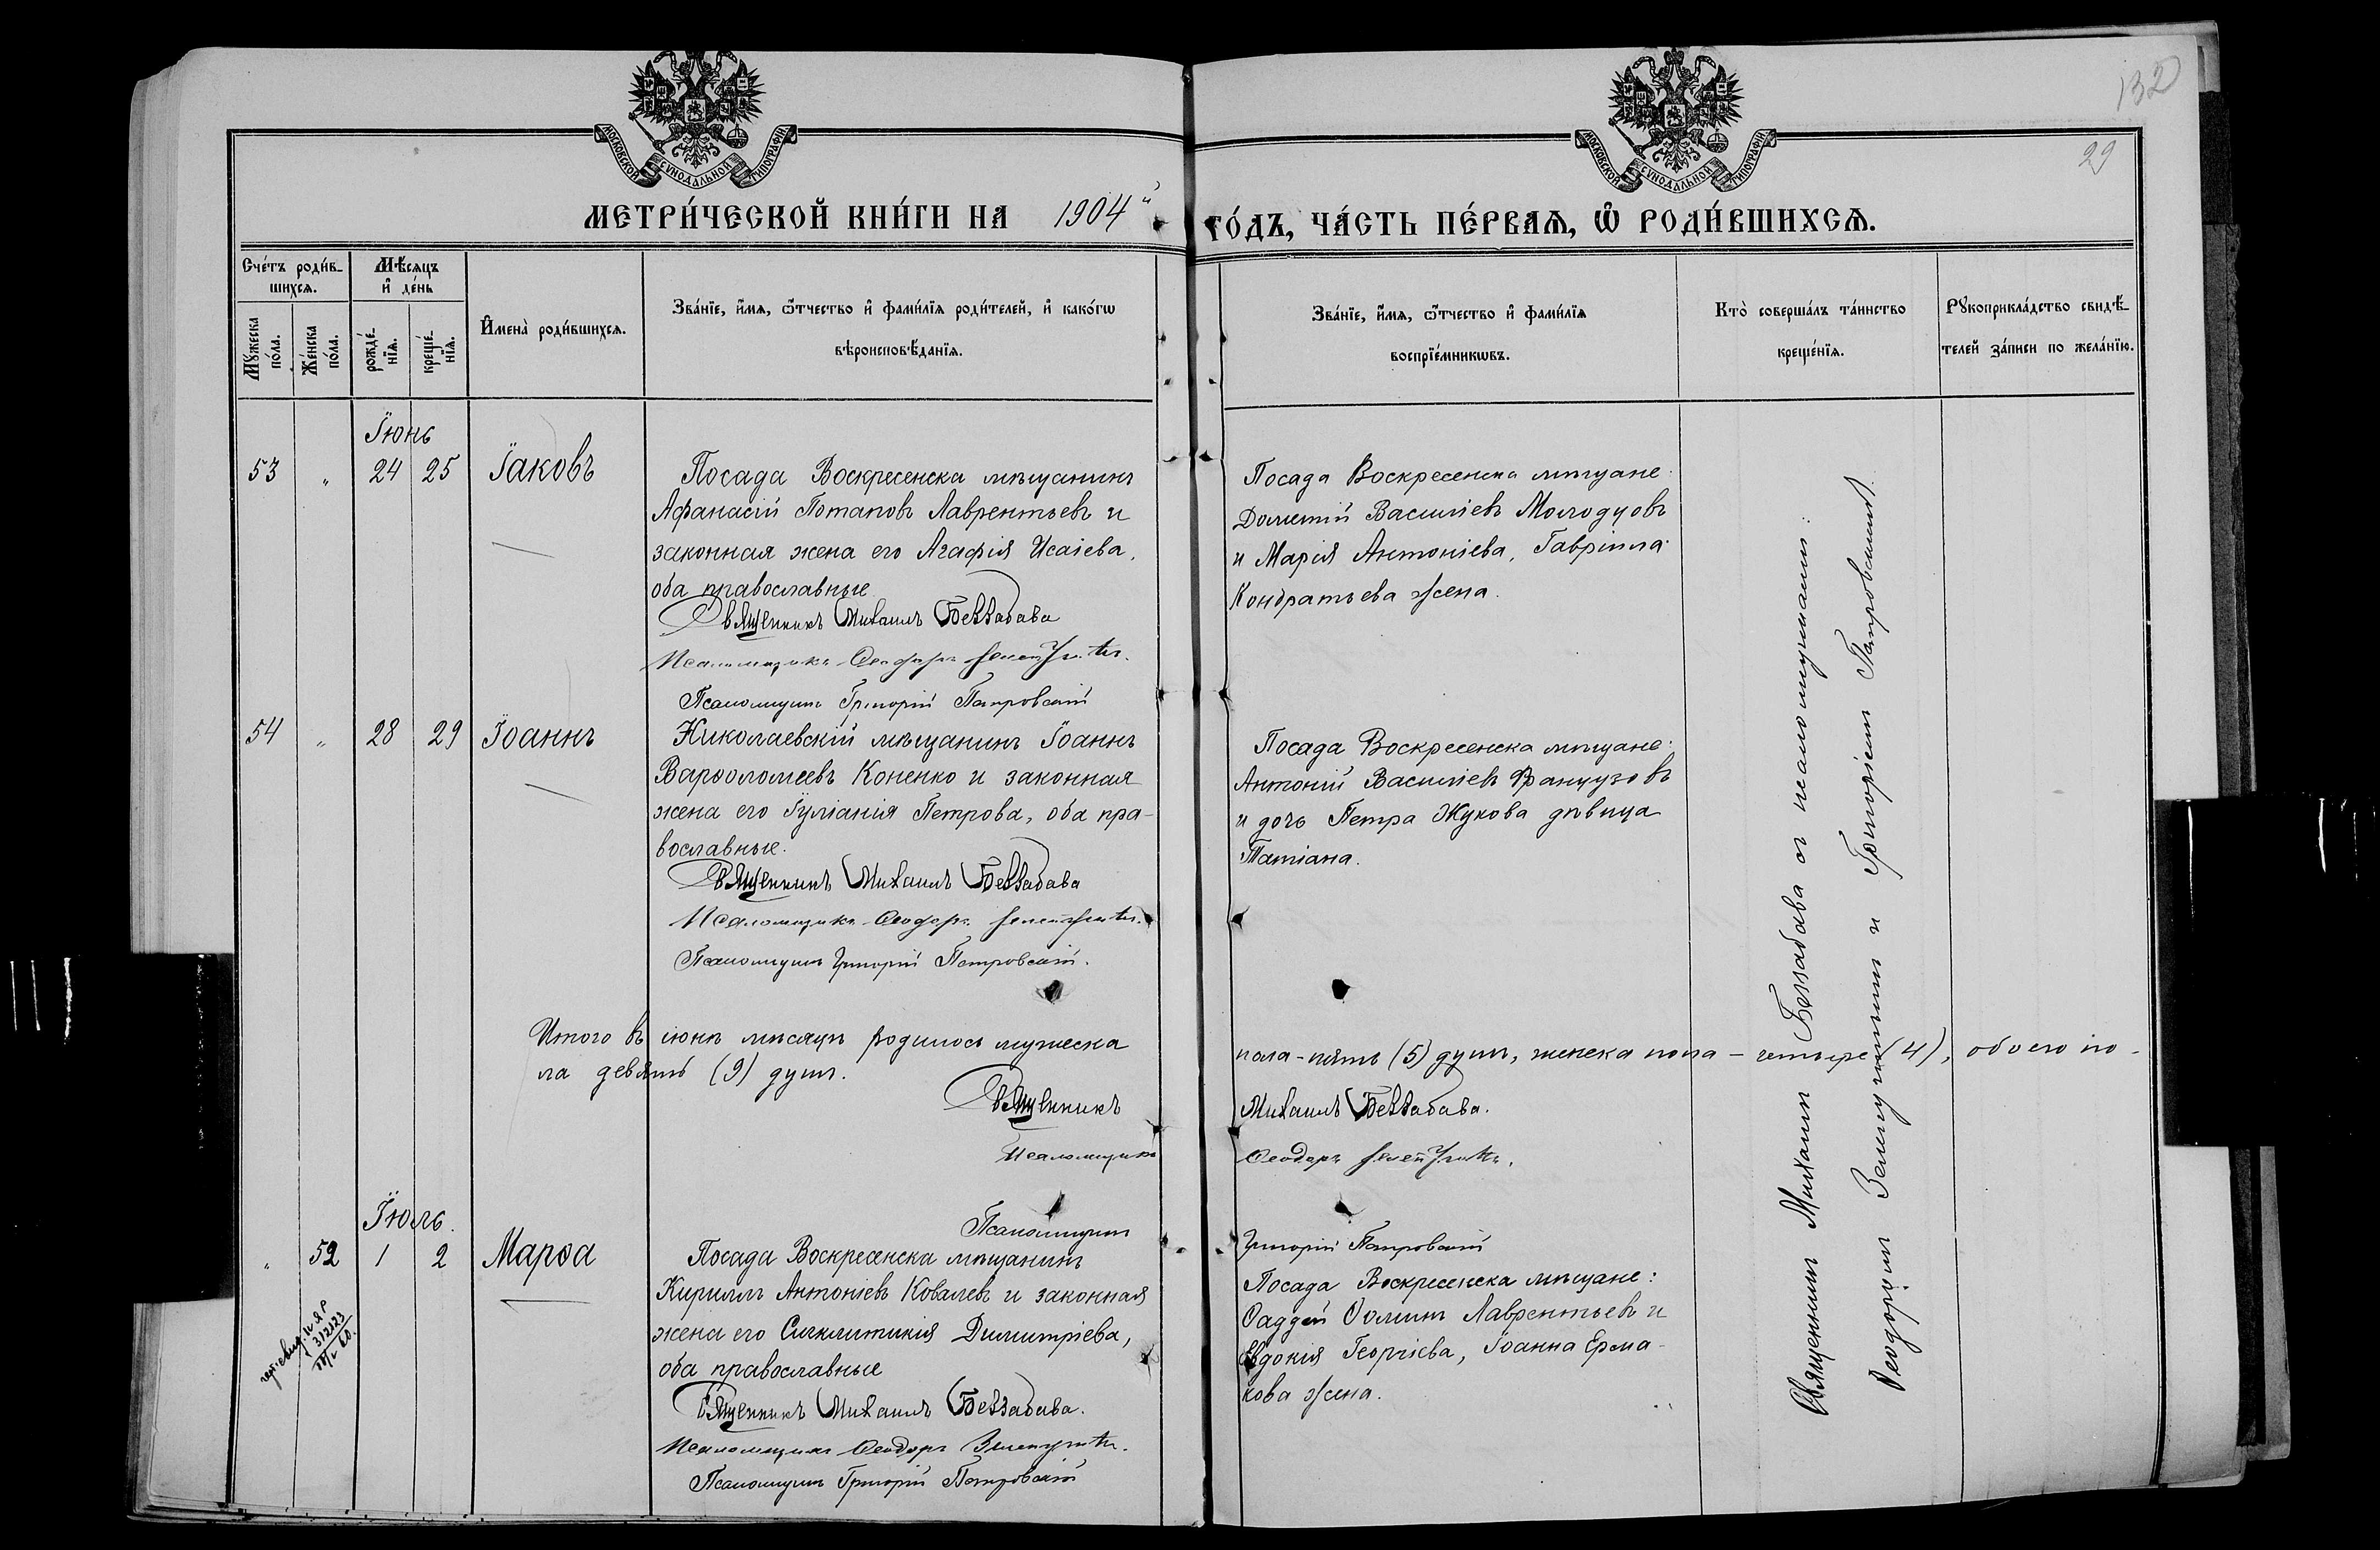 132
29
МОСКОВСКОЙ СУНОДАЛЬНОЙ ТИПОГРАФІИ
МОСКОВСКОЙ СУНОДАЛЬНОЙ ТИПОГРАФІИ
МЕТРИ́ЧЕСКОЙ КНИ́ГИ НА 1904 ГО́ДЪ, ЧА́СТЬ ПЕ́РВАѦ, Ѽ РОДИ́ВШИХСѦ.
Сче́тъ роди́в-
шихсѧ.
Мѣ́сѧцъ
и҆ де́нь
Мꙋ́жеска
по́ла.
Же́нска
по́ла.
рожде́-
нїѧ.
креще́-
нїѧ.
И҆мена̀ роди́вшихсѧ.
Зва́нїе, и҆́мѧ, ѻ҆́тчество и҆ фами́лїѧ роди́телей, и҆ како́гѡ
вѣроисповѣ́данїѧ.
Зва́нїе, и҆́мѧ, ѻ҆́тчество и҆ фами́лїѧ
воспрїе́мникѡвъ.
Кто̀ соверша́лъ та́инство
креще́нїѧ.
Рꙋкоприкла́дство свидѣ́-
телей за́писи по жела́нїю.
Іюнь
53 „ 24 25 Іаковъ
Посада Воскресенска мѣщанинъ
Афанасій Потаповъ Лаврентьевъ и
законная жена его Агафія Исаіева,
оба православные
Священникъ Михаилъ Беззабава
Псаломщикъ Ѳеодоръ
Псаломщикъ Григорій Петровскій
Посада Воскресенска мѣщане:
Дометій Василіевъ Молодцовъ
и Марія Антоніева, Гавріила
Кондратьева жена.
54 „ 28 29 Іоаннъ
Николаевскій мѣщанинъ Іоаннъ
Варѳоломеевъ Коненко и законная
жена его Іуліанія Петрова, оба пра-
вославные.
Священникъ Михаилъ Беззабава
Псаломщикъ Ѳеодоръ
Псаломщикъ Григорій Петровскій.
Посада Воскресенска мѣщане:
Антоній Василіевъ Французовъ
и дочь Петра Жукова дѣвица
Татіана.
Итого въ іюнѣ мѣсяцѣ родилось мужеска пола - пять (5) душъ, женска пола - четыре (4), обоего по-
ла девять (9) душъ.
Священникъ Михаилъ Беззабава.
Псаломщикъ Ѳеодоръ
Псаломщикъ Григорій Петровскій
Іюль.
„ 52 1 2 Марѳа
Посада Воскресенска мѣщанинъ
Кириллъ Антоніевъ Ковалевъ и законная
жена его Сигклитикія Димитріева,
оба православные
Священникъ Михаилъ Беззабава.
Псаломщикъ Ѳеодоръ
Псаломщикъ Григорій Петровскій
Посада Воскресенска мѣщане:
Ѳаддей Ѳоминъ Лаврентьевъ и
Евдокія Георгіева, Іоанна Ерма-
кова жена.
Священникъ Михаилъ Беззабава съ псаломщиками:
Ѳеодоромъ и Григоріемъ Петровскимъ.